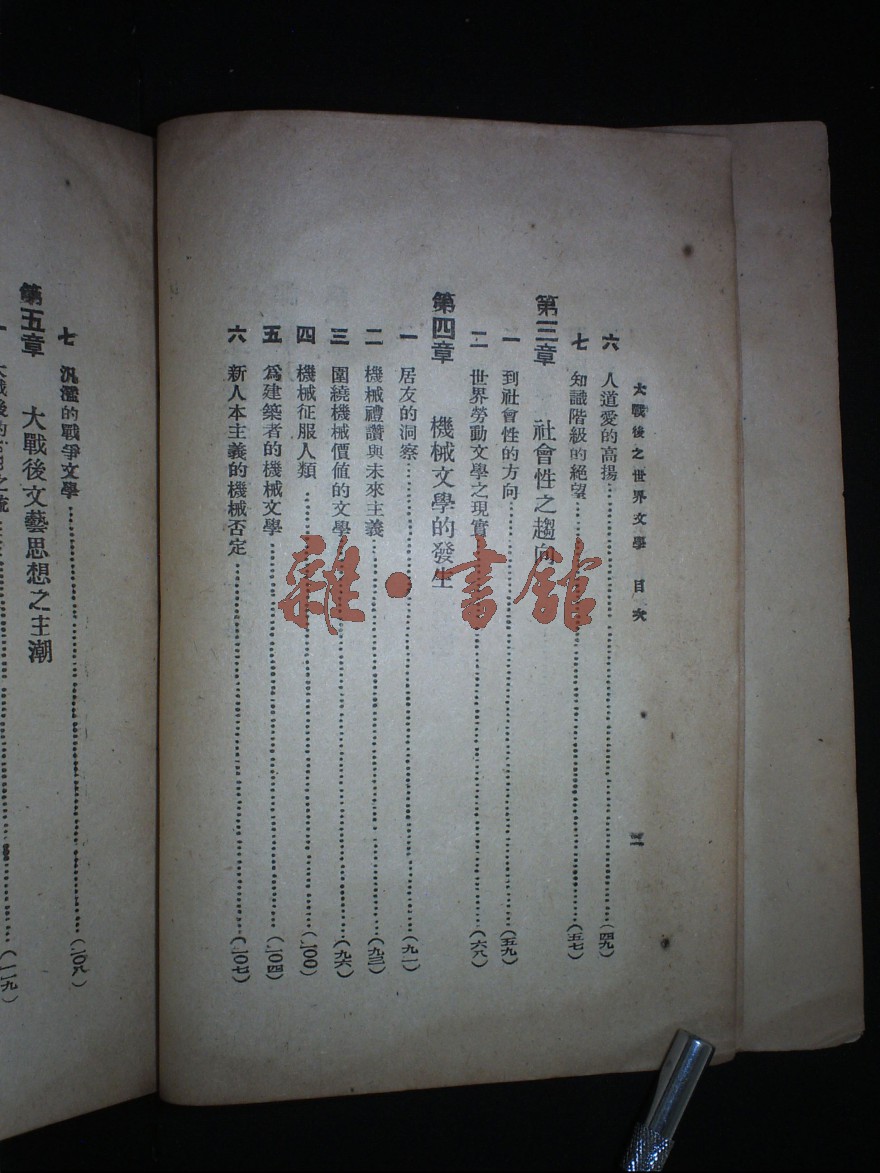 大戰後之世界文學 目次
二
六 人道愛的高揚……(四九)
七 知識階級的絕望……(五七)
第三章 社會性之趨向
一 到社會性的方向……(五九)
二 世界勞動文學之現實……(六八)
第四章 機械文學的發生
一 居友的洞察……(九一)
二 機械禮讚與未來主義……(九三)
三 圍繞機械價值的文學……(九六)
四 機械征服人類……(一〇〇)
五 爲建築者的機械文學……(一〇四)
六 新人本主義的機械否定……(一〇七)
七 汎濫的戰爭文學……(一〇八)
第五章 大戰後文藝思想之主潮
一 大戰後的……(一一九)
雜·書館